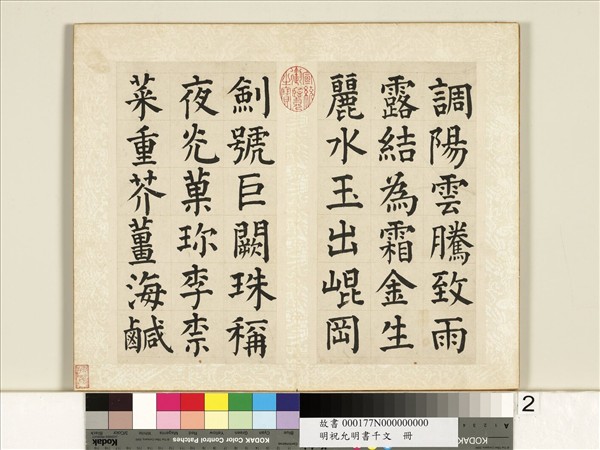 調陽雲騰致雨
露結為霜金生
麗水玉出崐岡
劍號巨闕珠稱
夜光菓珎李柰
菜重芥薑海鹹
2
故書 000177N000000000
明祝允明書千文 冊
Kodak
KODAK Color Control Patches
Kodak